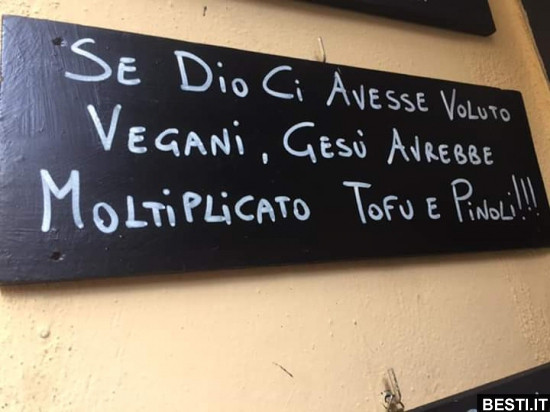 Se Dio Ci Avesse Voluto
Vegani, Gesù Avrebbe
Moltiplicato Tofu e Pinoli!!!
BESTI.IT